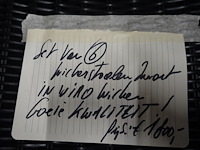 Set van (6)
wickerstoelen zwart
IN WIRO wicker
Goeie KWALITEIT!
PRIJS € 1800,-